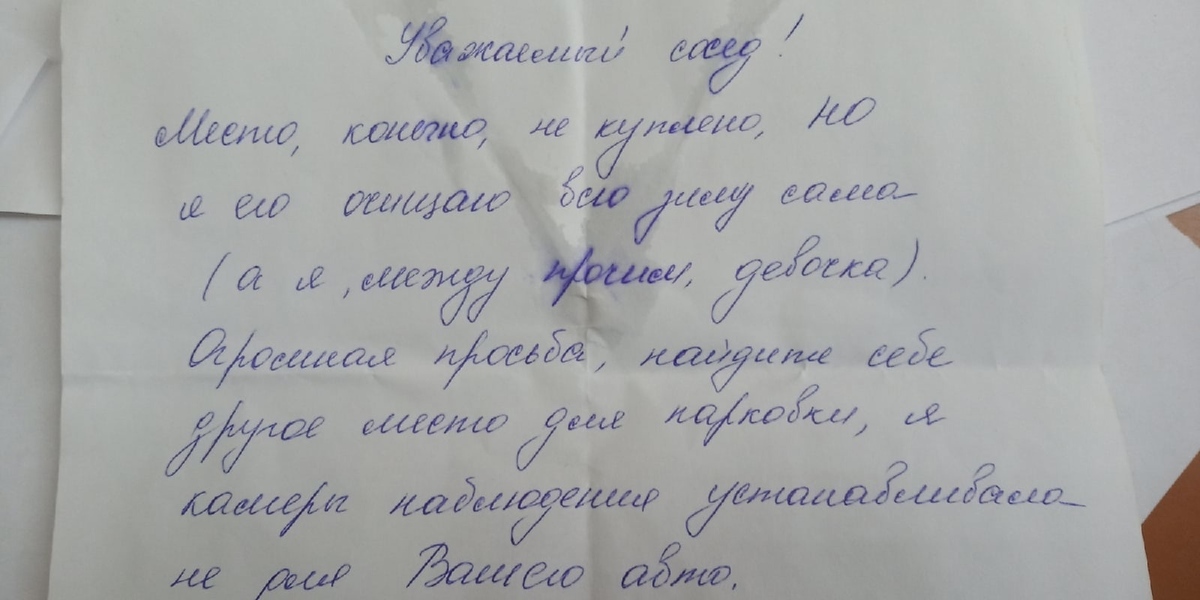 Уважаемый сосед!
Место, конечно, не куплено, НО
я его очищаю всю зиму сама
(а я, между прочим, девочка).
Огромная просьба, найдите себе
другое место для парковки, я
камеры наблюдения устанавливала
не для Вашего авто.